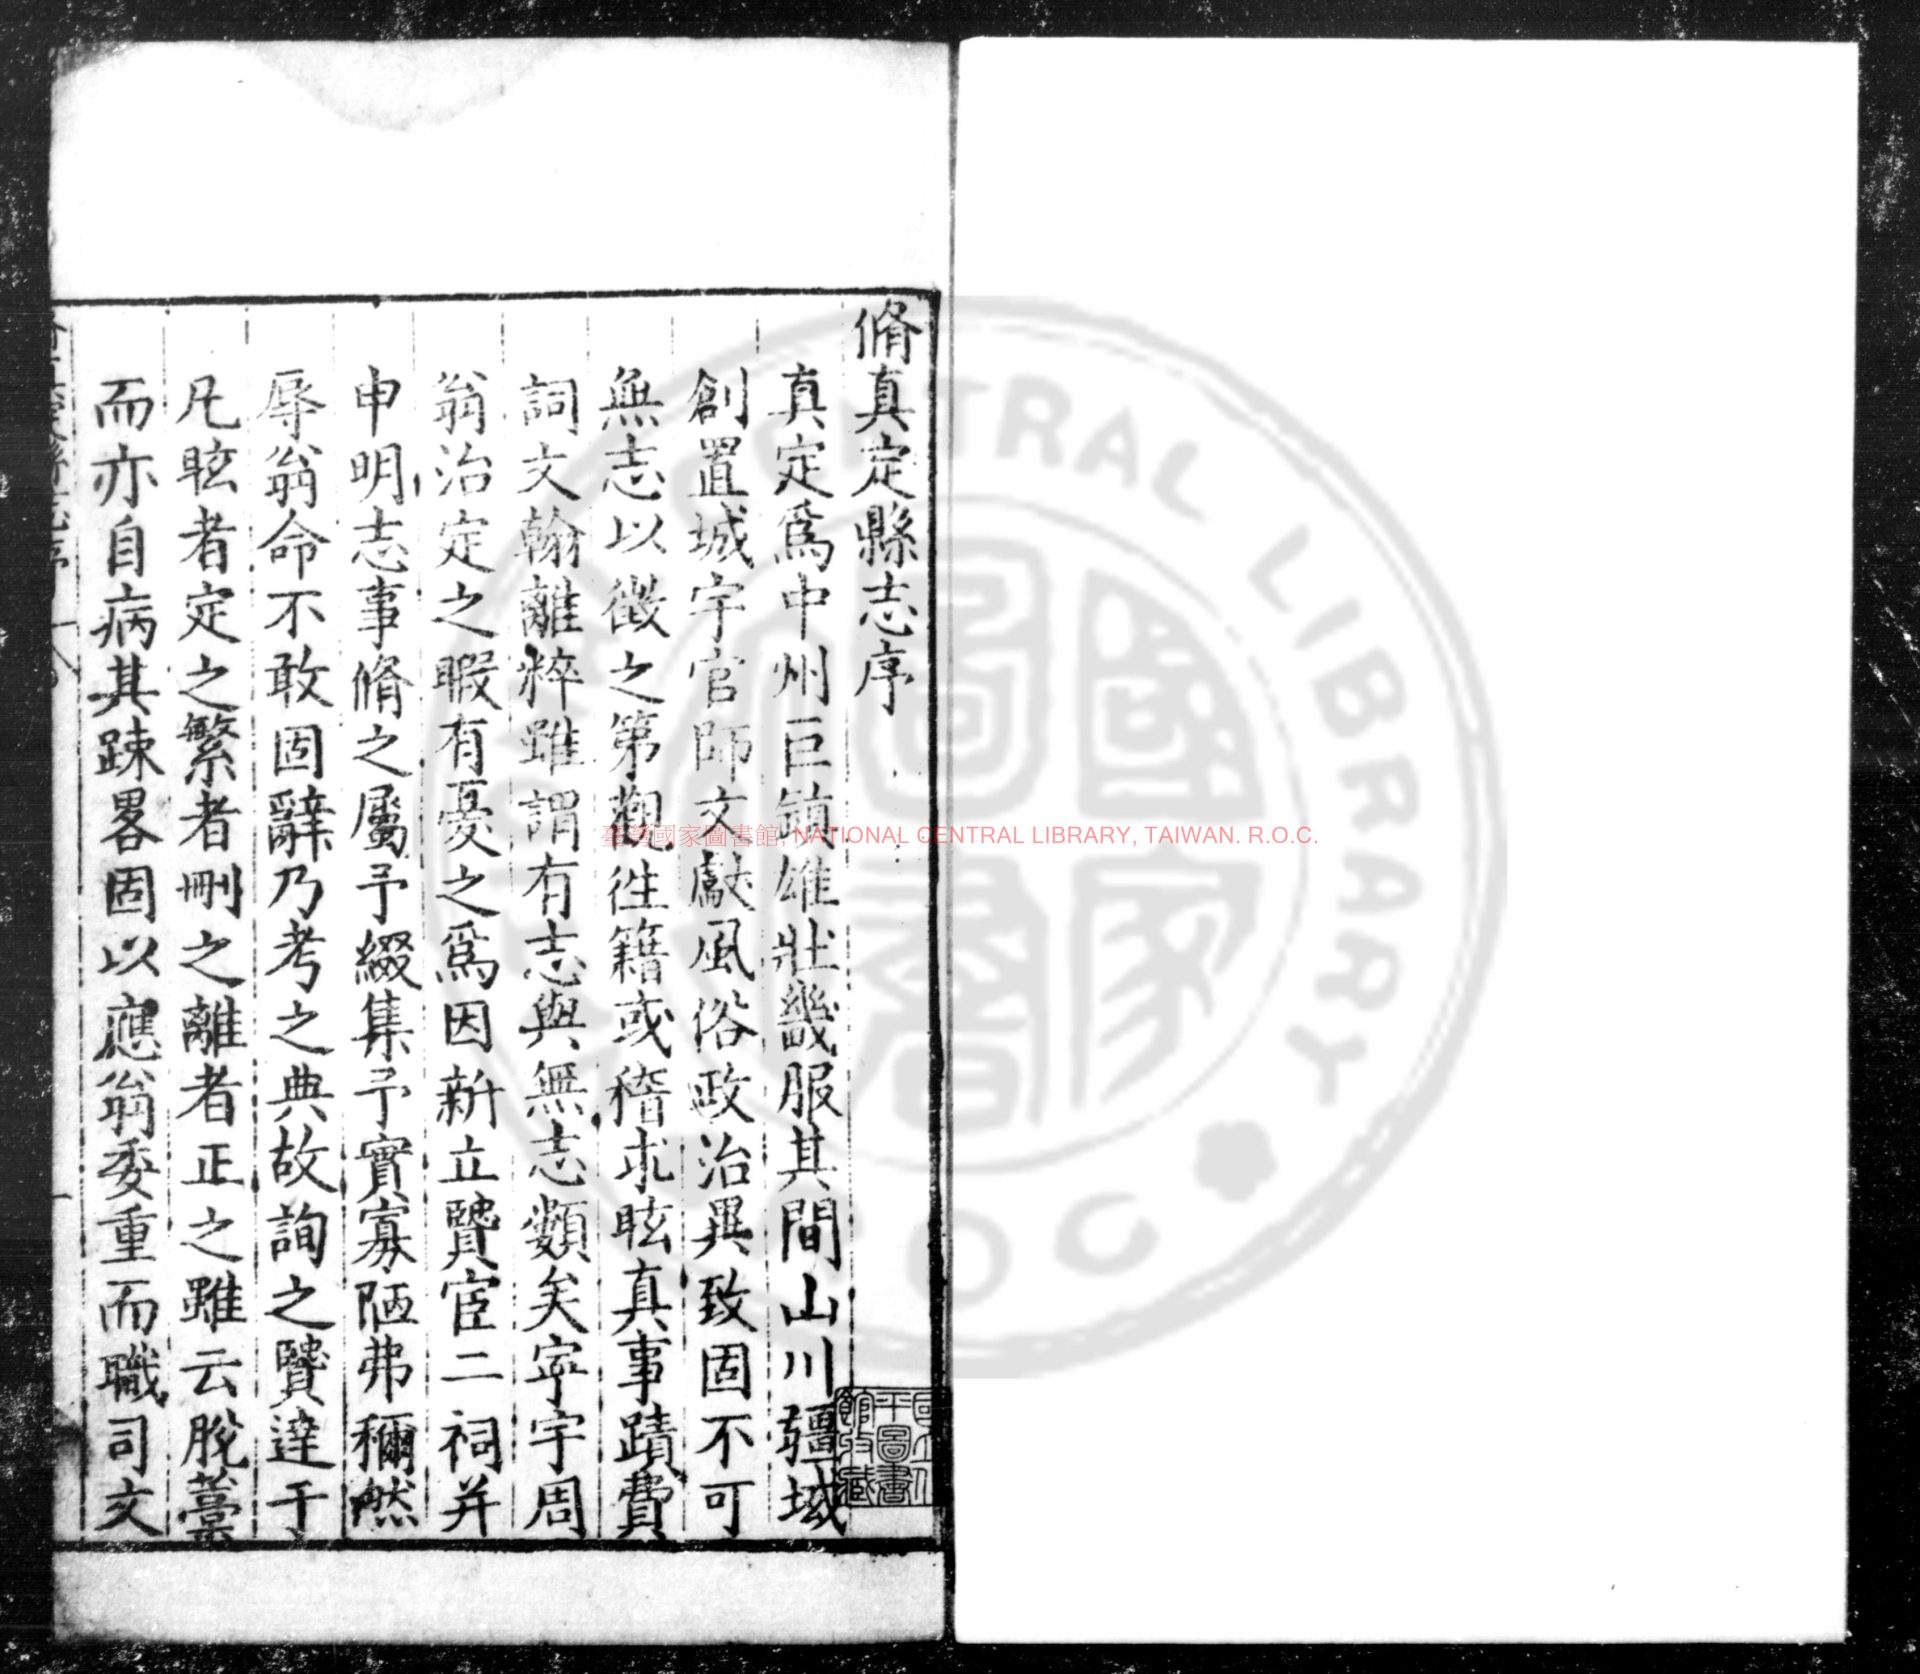 脩真定縣志序
真定爲中州巨鎮雄壯畿服其間山川疆域
創置城宇官師文獻風俗政治異致固不可
無志以徵之第觀徃籍或稽朮眩真事蹟費
詞文翰離粹雖謂有志與無志類矣寧宇周
翁治定之暇有憂之爲因新立贒宦二祠并
申明志事脩之屬予綴集予實寡陋弗稱然
辱翁命不敢固辭乃考之典故詢之贒達于
凡眩者定之繁者刪之離者正之雖云脫藳
而亦自病其踈畧固以應翁委重而職司文
臺灣國家圖書館, NATIONAL CENTRAL LIBRARY, TAIWAN. R.O.C.